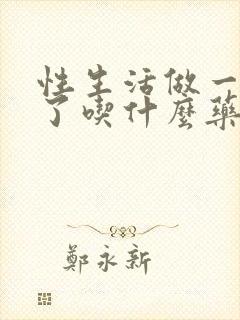 性生活做一
了喫什麼藥
鄭永新